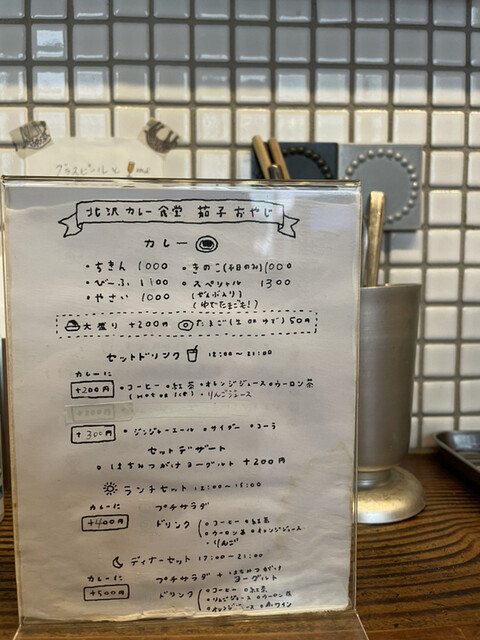 グラスビール
北沢カレー食堂 茄子おやじ
カレー
・ちきん 1000 ・きのこ(平日のみ)1000
・びーふ 1100 ・スペシャル 1300
・やさい 1000 (ぜんぶ入り)
(ゆでたまごも!)
大盛り +200円 たまご(生 or ゆで) 50円
セットドリンク 12:00〜21:00
カレーに
+200円 ・コーヒー ・紅茶 ・オレンジジュース ・ウーロン茶
(HOT or ICE) ・りんごジュース
+300円 ・ジンジャーエール ・サイダー ・コーラ
セットデザート
・はちみつがけヨーグルト +200円
ランチセット 12:00〜15:00
カレーに プチサラダ
+400円 ドリンク ・コーヒー ・紅茶
・ウーロン茶 ・オレンジジュース
・りんご
ディナーセット 17:00〜21:00
カレーに プチサラダ + はちみつがけ
ヨーグルト
+500円 ドリンク ・コーヒー ・紅茶
・りんごジュース ・ウーロン茶